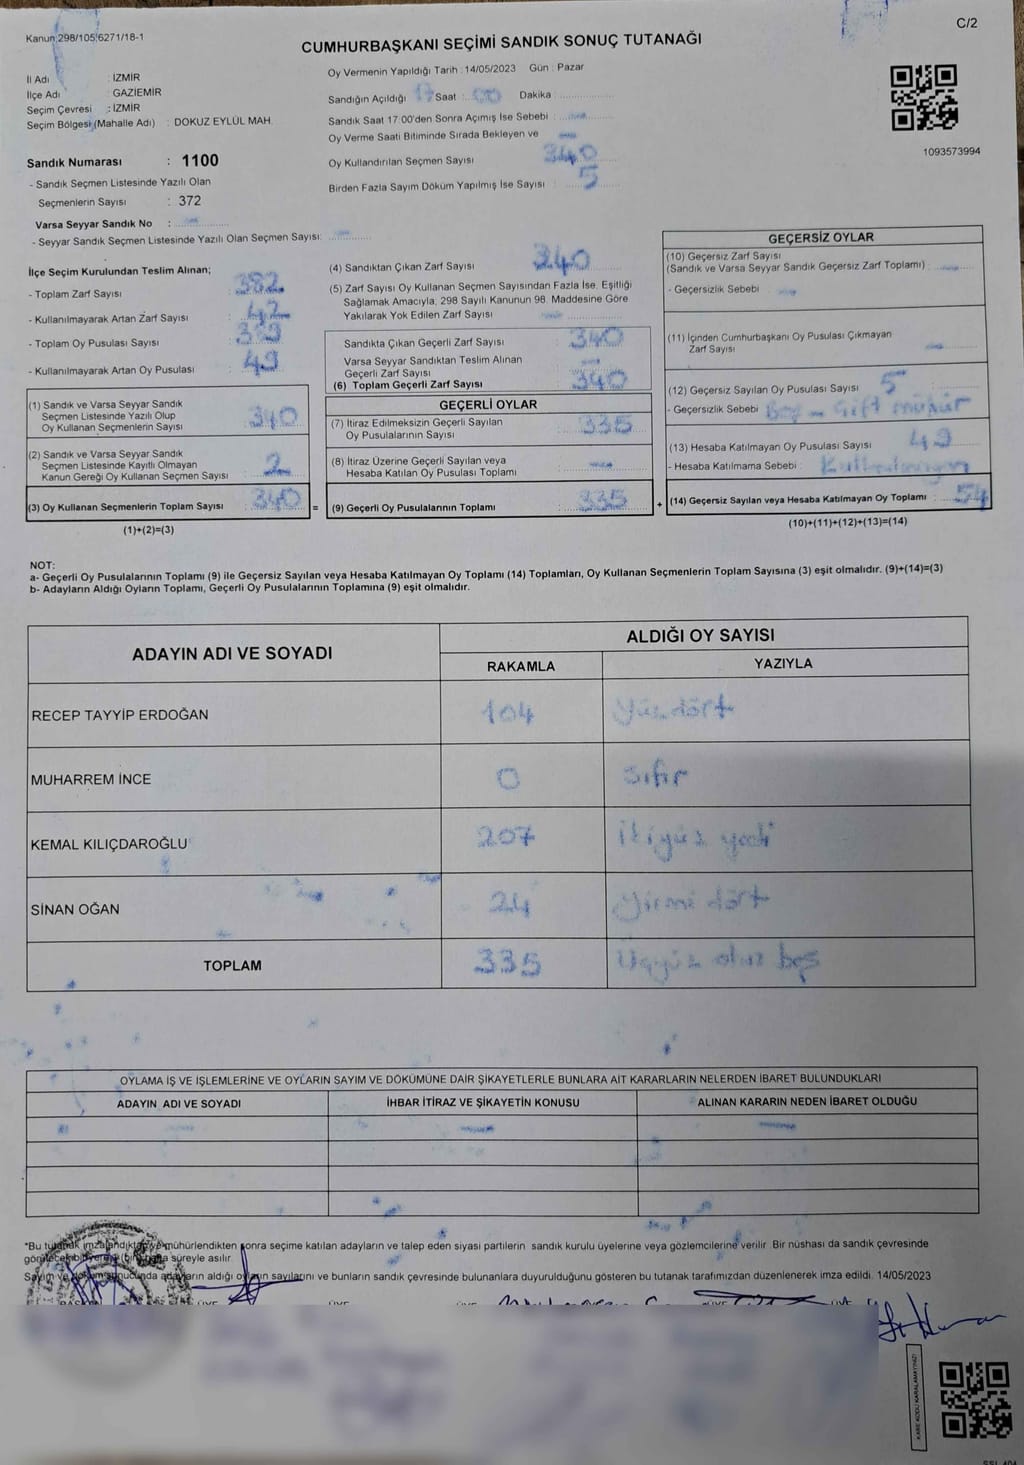 Kanun 298/105,6271/18-1
C/2
CUMHURBAŞKANI SEÇİMİ SANDIK SONUÇ TUTANAĞI
İl Adı : İZMİR
İlçe Adı : GAZİEMİR
Seçim Çevresi : İZMİR
Seçim Bölgesi (Mahalle Adı) : DOKUZ EYLÜL MAH.
Sandık Numarası : 1100
- Sandık Seçmen Listesinde Yazılı Olan
Seçmenlerin Sayısı : 372
Varsa Seyyar Sandık No :
- Seyyar Sandık Seçmen Listesinde Yazılı Olan Seçmen Sayısı:
Oy Vermenin Yapıldığı Tarih : 14/05/2023 Gün : Pazar
Sandığın Açıldığı 17 Saat : 00 Dakika
Sandık Saat 17:00'den Sonra Açımış İse Sebebi :
Oy Verme Saati Bitiminde Sırada Bekleyen ve
Oy Kullandırılan Seçmen Sayısı 340
Birden Fazla Sayım Döküm Yapılmış İse Sayısı : 5
1093573994
İlçe Seçim Kurulundan Teslim Alınan;
- Toplam Zarf Sayısı 382
- Kullanılmayarak Artan Zarf Sayısı 42
- Toplam Oy Pusulası Sayısı
- Kullanılmayarak Artan Oy Pusulası 49
(1) Sandık ve Varsa Seyyar Sandık
Seçmen Listesinde Yazılı Olup
Oy Kullanan Seçmenlerin Sayısı 340
(2) Sandık ve Varsa Seyyar Sandık
Seçmen Listesinde Kayıtlı Olmayan
Kanun Gereği Oy Kullanan Seçmen Sayısı 2
(3) Oy Kullanan Seçmenlerin Toplam Sayısı 340
(1)+(2)=(3)
=
(4) Sandıktan Çıkan Zarf Sayısı 340
(5) Zarf Sayısı Oy Kullanan Seçmen Sayısından Fazla İse, Eşitliği
Sağlamak Amacıyla, 298 Sayılı Kanunun 98. Maddesine Göre
Yakılarak Yok Edilen Zarf Sayısı
Sandıkta Çıkan Geçerli Zarf Sayısı 340
Varsa Seyyar Sandıktan Teslim Alınan
Geçerli Zarf Sayısı
(6) Toplam Geçerli Zarf Sayısı 340
GEÇERLİ OYLAR
(7) İtiraz Edilmeksizin Geçerli Sayılan
Oy Pusulalarının Sayısı 335
(8) İtiraz Üzerine Geçerli Sayılan veya
Hesaba Katılan Oy Pusulası Toplamı
(9) Geçerli Oy Pusulalarının Toplamı 335
+
GEÇERSİZ OYLAR
(10) Geçersiz Zarf Sayısı
(Sandık ve Varsa Seyyar Sandık Geçersiz Zarf Toplamı) :
- Geçersizlik Sebebi :
(11) İçinden Cumhurbaşkanı Oy Pusulası Çıkmayan
Zarf Sayısı
(12) Geçersiz Sayılan Oy Pusulası Sayısı 5
- Geçersizlik Sebebi Boş - Gift mühür
(13) Hesaba Katılmayan Oy Pusulası Sayısı 49
- Hesaba Katılmama Sebebi :
(14) Geçersiz Sayılan veya Hesaba Katılmayan Oy Toplamı : 54
(10)+(11)+(12)+(13)=(14)
NOT:
a- Geçerli Oy Pusulalarının Toplamı (9) ile Geçersiz Sayılan veya Hesaba Katılmayan Oy Toplamı (14) Toplamları, Oy Kullanan Seçmenlerin Toplam Sayısına (3) eşit olmalıdır. (9)+(14)=(3)
b- Adayların Aldığı Oyların Toplamı, Geçerli Oy Pusulalarının Toplamına (9) eşit olmalıdır.
ADAYIN ADI VE SOYADI
ALDIĞI OY SAYISI
RAKAMLA YAZIYLA
RECEP TAYYİP ERDOĞAN 104 yüzdört
MUHARREM İNCE 0 sıfır
KEMAL KILIÇDAROĞLU 207 ikiyüz yedi
SİNAN OĞAN 24 yirmi dört
TOPLAM 335 üçyüz otuz beş
OYLAMA İŞ VE İŞLEMLERİNE VE OYLARIN SAYIM VE DÖKÜMÜNE DAİR ŞİKAYETLERLE BUNLARA AİT KARARLARIN NELERDEN İBARET BULUNDUKLARI
ADAYIN ADI VE SOYADI İHBAR İTİRAZ VE ŞİKAYETİN KONUSU ALINAN KARARIN NEDEN İBARET OLDUĞU
*Bu tutanak imzalandıktan ve mühürlendikten sonra seçime katılan adayların ve talep eden siyasi partilerin sandık kurulu üyelerine veya gözlemcilerine verilir. Bir nüshası da sandık çevresinde
süreyle asılır.
Sayım ve döküm sonucunda adayların aldığı oyların sayılarını ve bunların sandık çevresinde bulunanlara duyurulduğunu gösteren bu tutanak tarafımızdan düzenlenerek imza edildi. 14/05/2023
KARE KODU KARALAMAYINIZ!